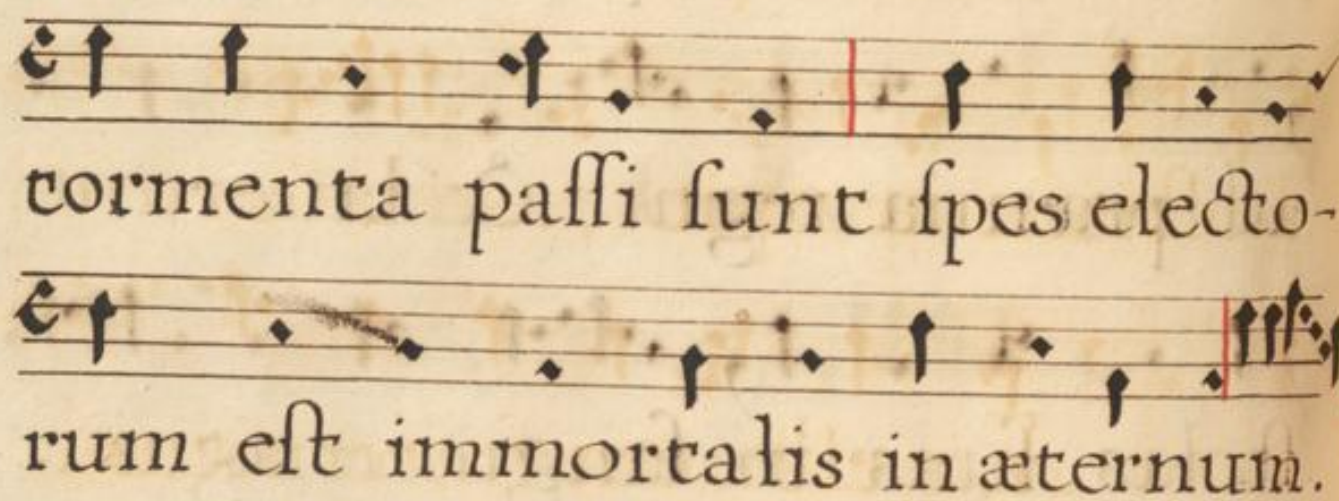 tormenta paſſi ſunt ſpes electo-
rum eſt immortalis in æternum.